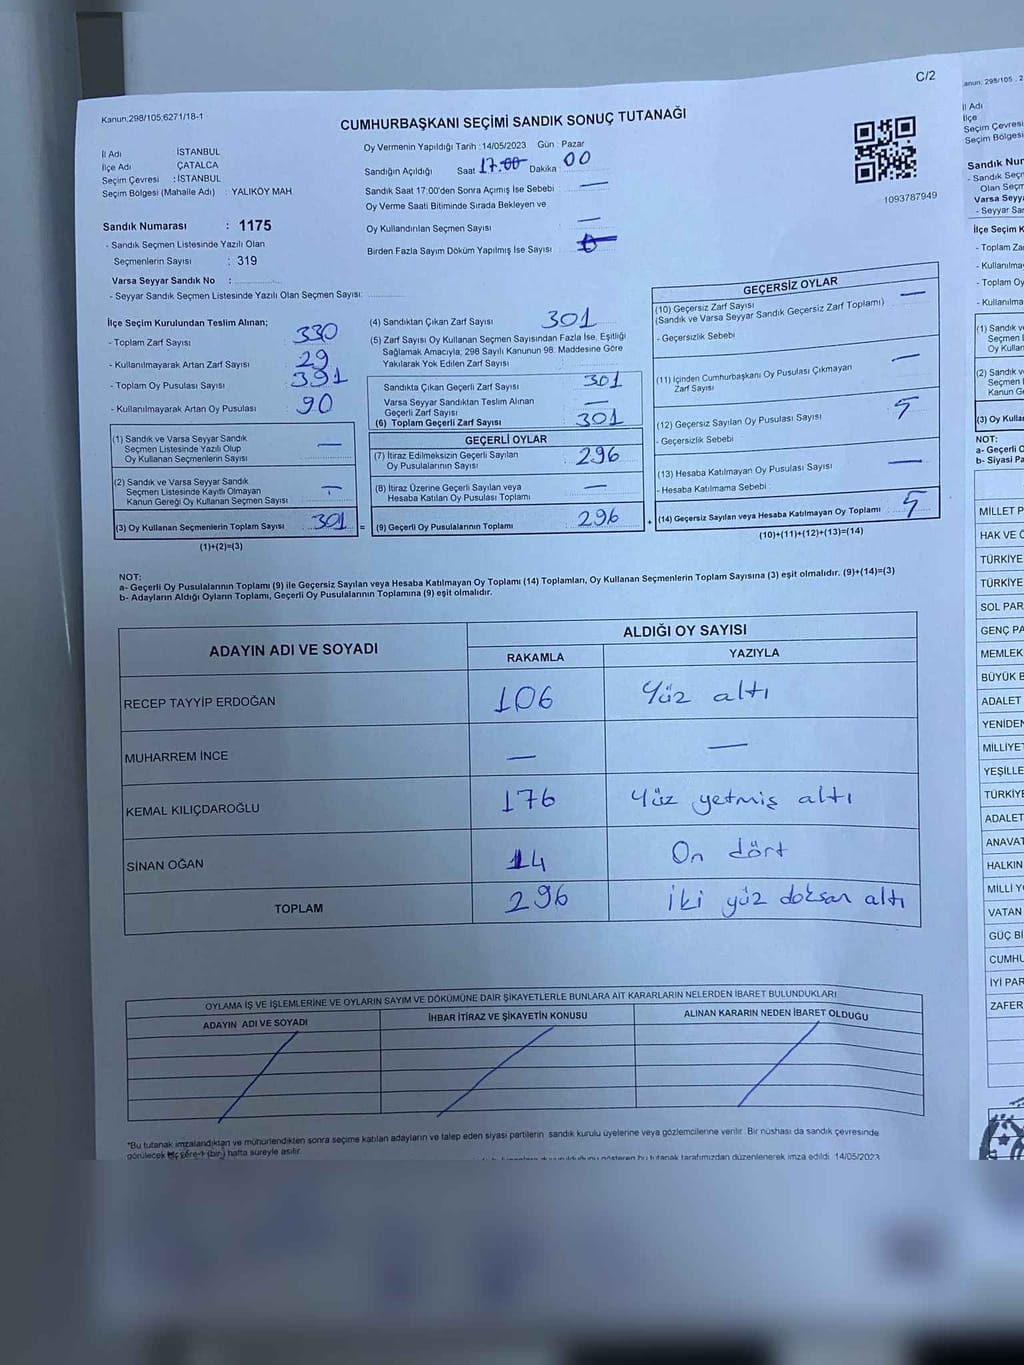 C/2
Kanun:298/105,6271/18-1
CUMHURBAŞKANI SEÇİMİ SANDIK SONUÇ TUTANAĞI
İl Adı : İSTANBUL
İlçe Adı : ÇATALCA
Seçim Çevresi : İSTANBUL
Seçim Bölgesi (Mahalle Adı) : YALIKÖY MAH.
Sandık Numarası : 1175
- Sandık Seçmen Listesinde Yazılı Olan
Seçmenlerin Sayısı : 319
Varsa Seyyar Sandık No :
- Seyyar Sandık Seçmen Listesinde Yazılı Olan Seçmen Sayısı:
Oy Vermenin Yapıldığı Tarih :14/05/2023 Gün : Pazar
Sandığın Açıldığı Saat 17:00 Dakika 00
Sandık Saat 17:00'den Sonra Açımış İse Sebebi —
Oy Verme Saati Bitiminde Sırada Bekleyen ve
Oy Kullandırılan Seçmen Sayısı —
Birden Fazla Sayım Döküm Yapılmış İse Sayısı
1093787949
İlçe Seçim Kurulundan Teslim Alınan;
- Toplam Zarf Sayısı 330
- Kullanılmayarak Artan Zarf Sayısı 29
- Toplam Oy Pusulası Sayısı 391
- Kullanılmayarak Artan Oy Pusulası 90
(1) Sandık ve Varsa Seyyar Sandık
Seçmen Listesinde Yazılı Olup
Oy Kullanan Seçmenlerin Sayısı —
(2) Sandık ve Varsa Seyyar Sandık
Seçmen Listesinde Kayıtlı Olmayan
Kanun Gereği Oy Kullanan Seçmen Sayısı
(3) Oy Kullanan Seçmenlerin Toplam Sayısı 301 =
(1)+(2)=(3)
(4) Sandıktan Çıkan Zarf Sayısı 301
(5) Zarf Sayısı Oy Kullanan Seçmen Sayısından Fazla İse, Eşitliği
Sağlamak Amacıyla; 298 Sayılı Kanunun 98. Maddesine Göre
Yakılarak Yok Edilen Zarf Sayısı
Sandıkta Çıkan Geçerli Zarf Sayısı 301
Varsa Seyyar Sandıktan Teslim Alınan
Geçerli Zarf Sayısı —
(6) Toplam Geçerli Zarf Sayısı 301
GEÇERLİ OYLAR
(7) İtiraz Edilmeksizin Geçerli Sayılan
Oy Pusulalarının Sayısı 296
(8) İtiraz Üzerine Geçerli Sayılan veya
Hesaba Katılan Oy Pusulası Toplamı —
(9) Geçerli Oy Pusulalarının Toplamı 296 +
GEÇERSİZ OYLAR
(10) Geçersiz Zarf Sayısı —
(Sandık ve Varsa Seyyar Sandık Geçersiz Zarf Toplamı)
- Geçersizlik Sebebi
(11) İçinden Cumhurbaşkanı Oy Pusulası Çıkmayan
Zarf Sayısı —
(12) Geçersiz Sayılan Oy Pusulası Sayısı 5
- Geçersizlik Sebebi
(13) Hesaba Katılmayan Oy Pusulası Sayısı —
- Hesaba Katılmama Sebebi
(14) Geçersiz Sayılan veya Hesaba Katılmayan Oy Toplamı 5
(10)+(11)+(12)+(13)=(14)
NOT:
a- Geçerli Oy Pusulalarının Toplamı (9) ile Geçersiz Sayılan veya Hesaba Katılmayan Oy Toplamı (14) Toplamları, Oy Kullanan Seçmenlerin Toplam Sayısına (3) eşit olmalıdır. (9)+(14)=(3)
b- Adayların Aldığı Oyların Toplamı, Geçerli Oy Pusulalarının Toplamına (9) eşit olmalıdır.
ADAYIN ADI VE SOYADI ALDIĞI OY SAYISI
RAKAMLA YAZIYLA
RECEP TAYYİP ERDOĞAN 106 Yüz altı
MUHARREM İNCE — —
KEMAL KILIÇDAROĞLU 176 Yüz yetmiş altı
SİNAN OĞAN 14 On dört
TOPLAM 296 İki yüz doksan altı
OYLAMA İŞ VE İŞLEMLERİNE VE OYLARIN SAYIM VE DÖKÜMÜNE DAİR ŞİKAYETLERLE BUNLARA AİT KARARLARIN NELERDEN İBARET BULUNDUKLARI
ADAYIN ADI VE SOYADI İHBAR İTİRAZ VE ŞİKAYETİN KONUSU ALINAN KARARIN NEDEN İBARET OLDUĞU
*Bu tutanak imzalandıktan ve mühürlendikten sonra seçime katılan adayların ve talep eden siyasi partilerin sandık kurulu üyelerine veya gözlemcilerine verilir. Bir nüshası da sandık çevresinde
görülecek (bir) hafta süreyle asılır.
bu tutanak tarafımızdan düzenlenerek imza edildi. 14/05/2023
anun: 298/105
İl Adı
İlçe
Seçim Çevres
Seçim Bölges
Sandık Num
- Sandık Seç
Olan Seç
Varsa Seyy
- Seyyar Sa
İlçe Seçim K
- Toplam Za
- Kullanılma
- Toplam Oy
- Kullanılma
(1) Sandık v
Seçmen L
Oy Kullan
(2) Sandık v
Seçmen
Kanun G
(3) Oy Kulla
NOT:
a- Geçerli O
b- Siyasi Pa
MİLLET P
HAK VE Ö
TÜRKİYE
TÜRKİYE
SOL PAR
GENÇ PA
MEMLEK
BÜYÜK B
ADALET
YENİDEN
MİLLİYET
YEŞİLLE
TÜRKİYE
ADALET
ANAVAT
HALKIN
MİLLİ Y
VATAN
GÜÇ Bİ
CUMHU
İYİ PAR
ZAFER